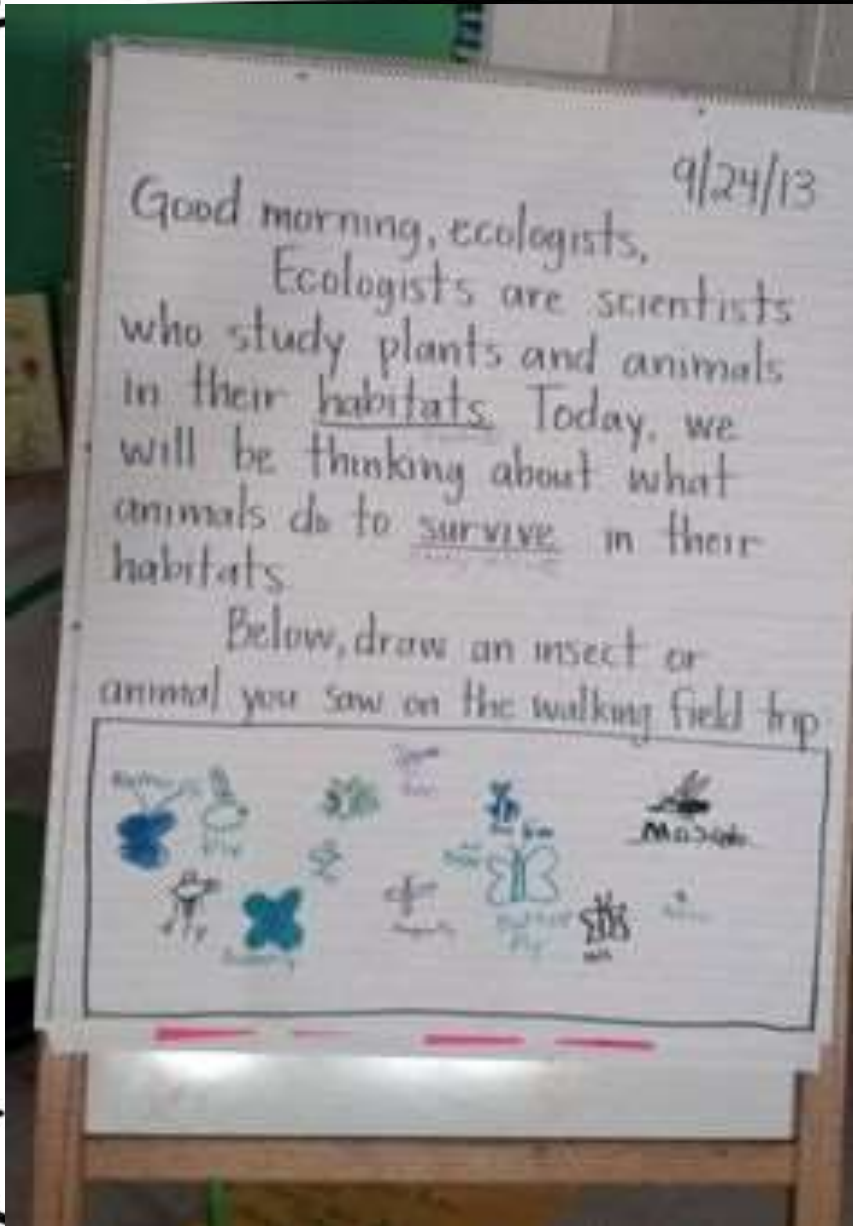 9/24/13
Good morning, ecologists,
Ecologists are scientists
who study plants and animals
in their habitats. Today, we
will be thinking about what
animals do to survive in their
habitats.
Below, draw an insect or
animal you saw on the walking field trip
Fly
Fly
Butter
Fly